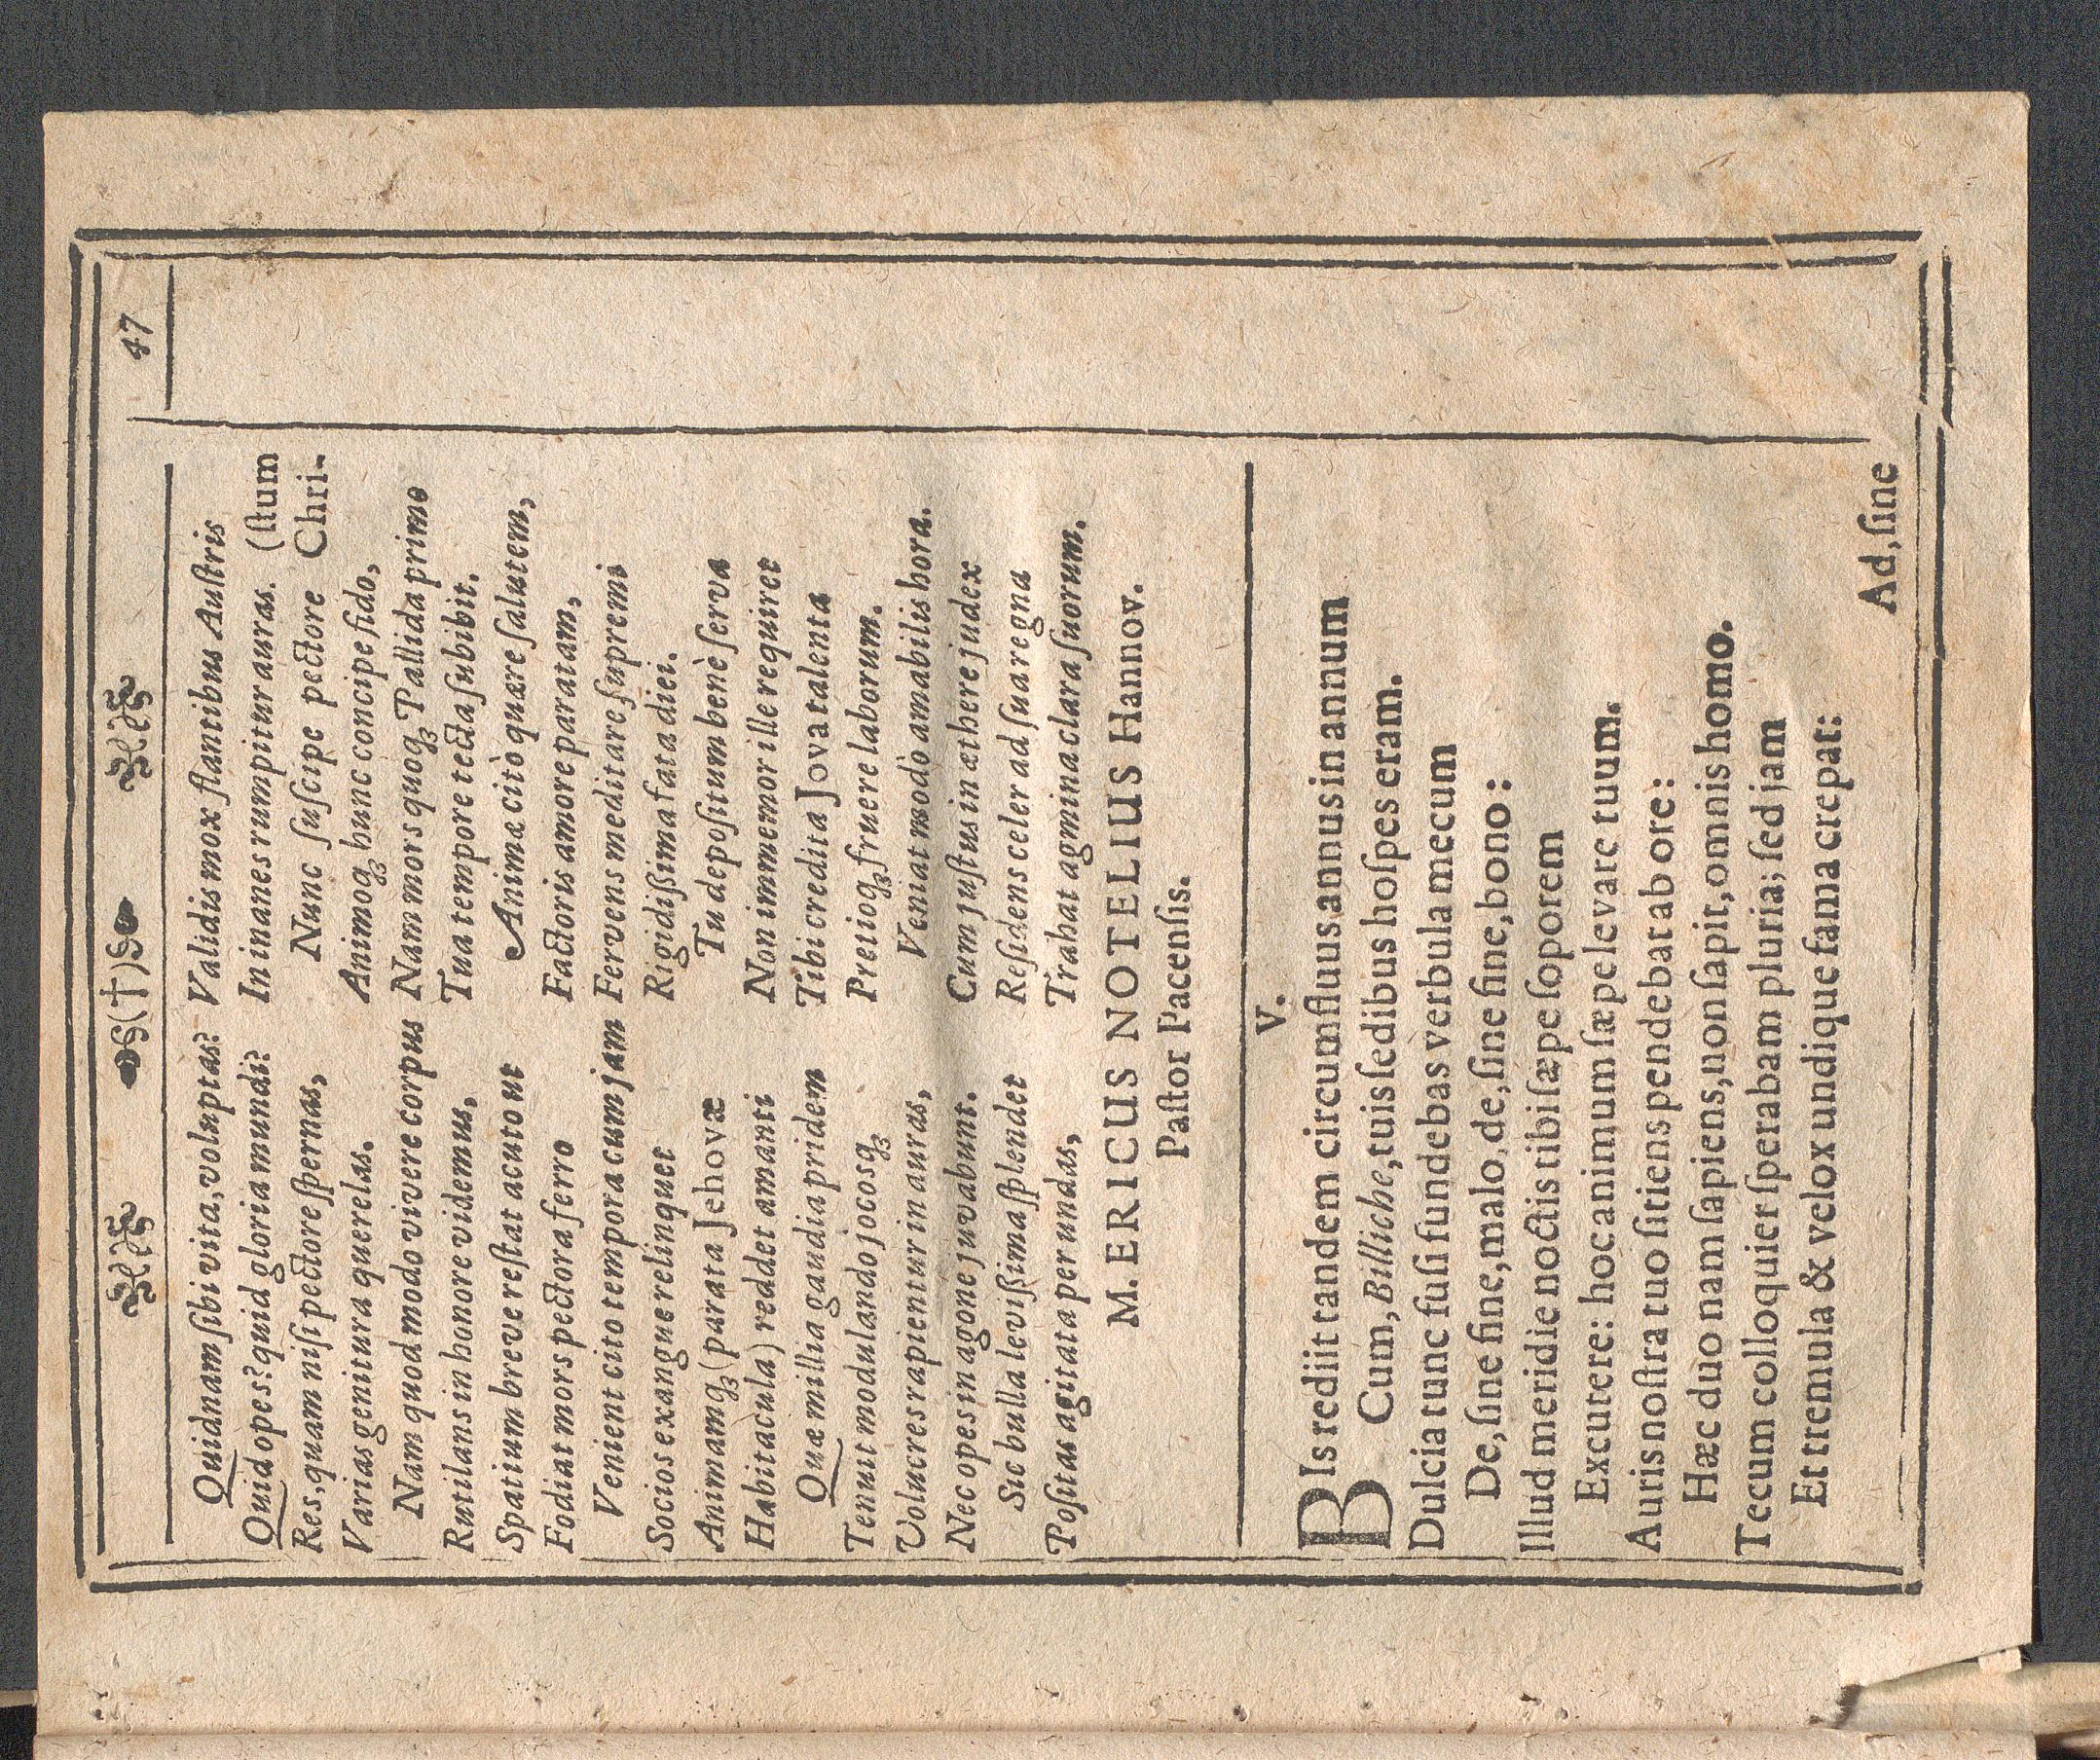 47
Quidnam ſibi vita, voluptas?
Quid opes? quid gloria mundi?
Res, quam niſi pectore ſpernas,
Varias genitura querelas.
Nam quod modo vivere corpus
Rutilans in honore videmus,
Spatium breve reſtat acuto ut
Fodiat mors pectora ferro
Venient cito tempora cum jam
Socios exangue relinquet
Animamq́ꝫ (parata Jehovæ
Habitacula) reddet amanti
Quæ millia gaudia pridem
Tenuit modulando jocosqꝫ
Volucres rapientur in auras,
Nec opes in agone juvabunt.
Sic bulla leviſſima ſplendet
Poſitas agitata per undas,
Validis mox flantibus Auſtris
In inanes rumpitur auras. (ſtum
Nunc ſuſcipe pectore Chri-
Animoqꝫ hunc concipe fido,
Nam mors quoqꝫ Pallida primo
Tua tempore tecta ſubibit.
Animæ citò quære ſalutem,
Factoris amore paratam,
Fervens meditare ſupremi
Rigidiſſima fata diei.
Tu depoſitum benè ſerva
Non immemor ille requiret
Tibi credita Jova talenta
Pretioqꝫ fruere laborum.
Veniat modò amabilis hora.
Cum juſtus in æthere judex
Reſidens celer ad ſua regna
Trahat agmina clara ſuorum.
M. ERICUS NOTELIUS Hannov.
Paſtor Pacenſis.
V.
BIs rediit tandem circumfluus annus in annum
Cum, Billiche, tuis ſedibus hoſpes eram.
Dulcia tunc fuſi fundebas verbula mecum
De, ſine fine, malo, de, ſine fine, bono:
Illud meridie noctis tibi ſæpe ſoporem
Excutere: hoc animum ſæpe levare tuum.
Auris noſtra tuo ſitiens pendebat ab ore:
Hæc duo nam ſapiens, non ſapit, omnis homo.
Tecum colloquier ſperabam pluria; ſed jam
Et tremula & velox undique fama crepat:
Ad, ſine